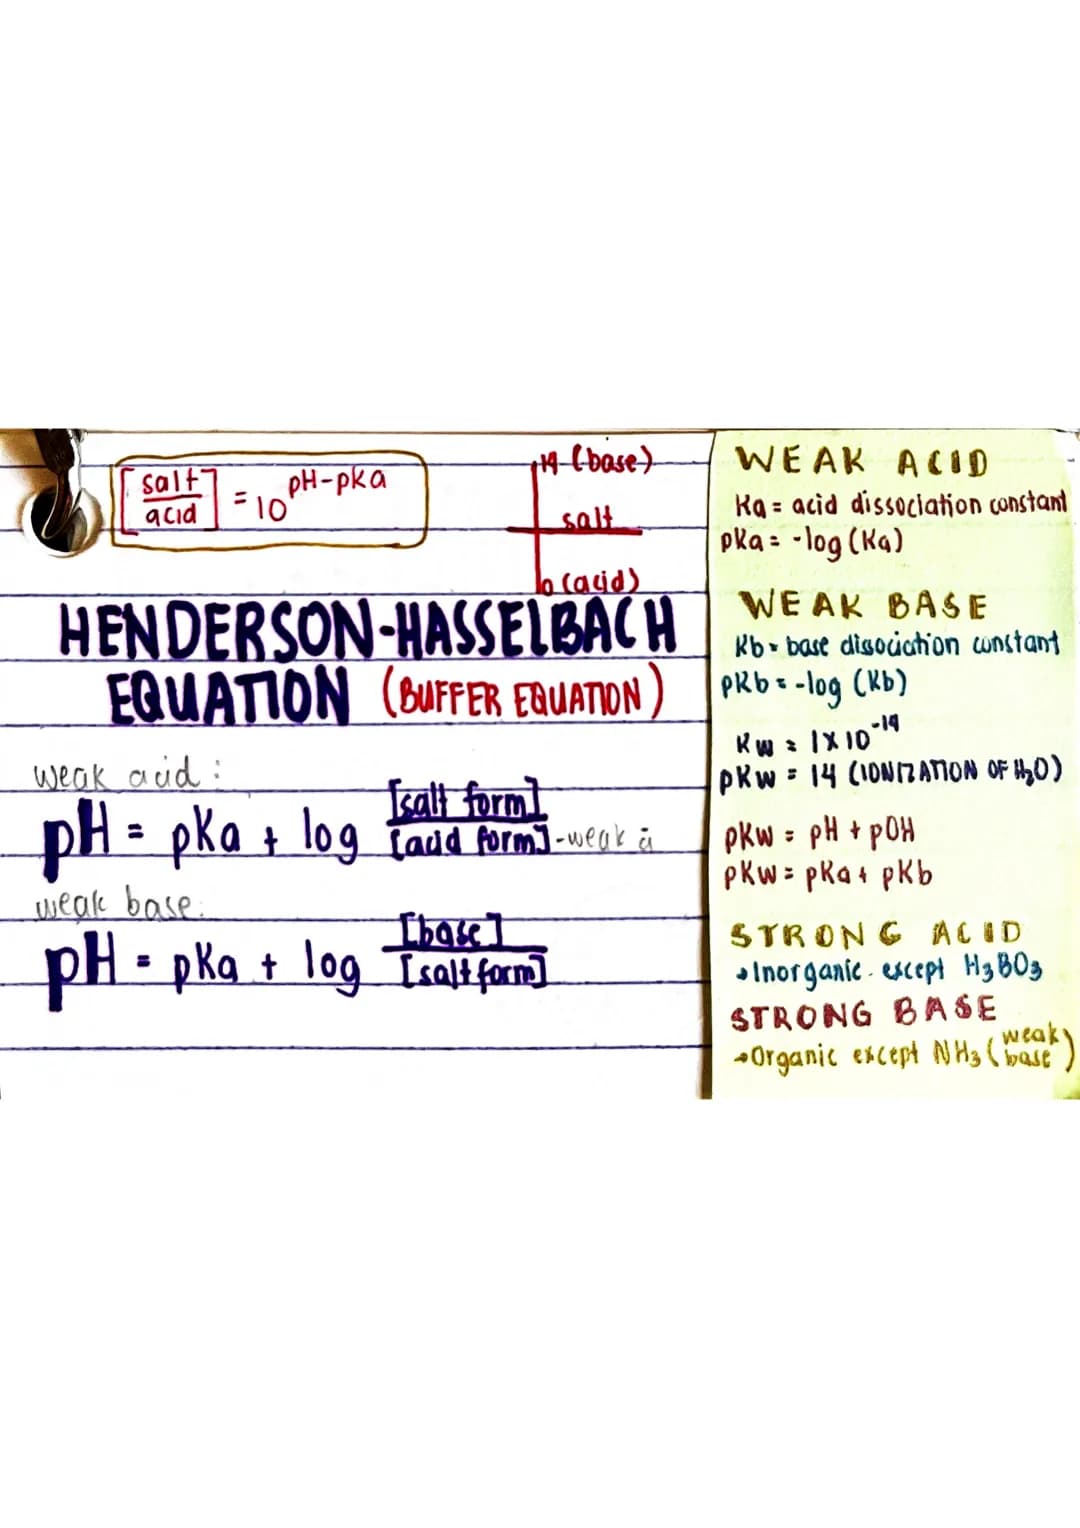 [salt/acid] = 10^pH-pKa
14 (base)
salt
0 (acid)
HENDERSON-HASSELBACH
EQUATION (BUFFER EQUATION)
weak acid:
pH = pKa + log [salt form]/[acid form] -weak a
weak base:
pH = pKa + log [base]/[salt form]
WEAK ACID
Ka = acid dissociation constant
pKa = -log (Ka)
WEAK BASE
Kb = base dissociation constant
pKb = -log (Kb)
Kw = 1X10^-14
pKw = 14 (IONIZATION OF H₂O)
pKw = pH + pOH
pKw = pKa + pKb
STRONG ACID
→Inorganic - except H₃BO₃
STRONG BASE
→Organic except NH₃ (weak base)